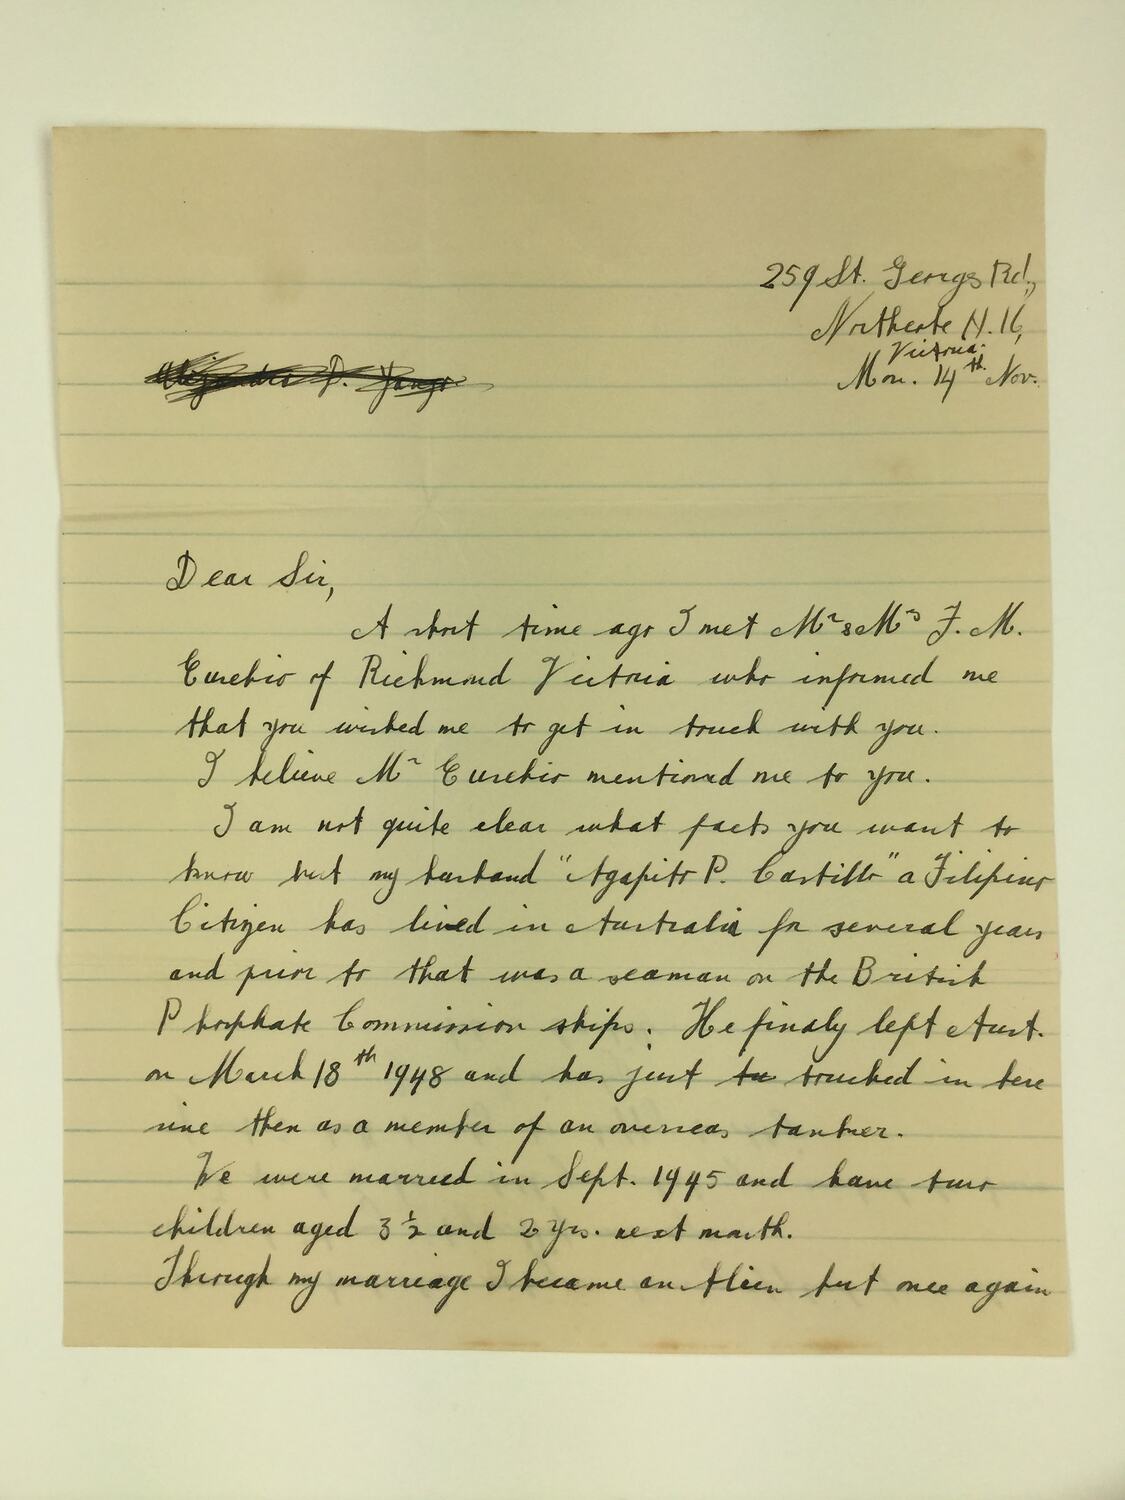 259 St. Georgs Rd.,
Northcote N.16,
Victoria.
Mon. 14th Nov.
D. Yango
Dear Sir,
A short time ago I met Mr & Mrs F. M.
Eusebio of Richmond Victoria who informed me
that you wished me to get in touch with you.
I believe Mr Eusebio mentioned me to you.
I am not quite clear what facts you want to
know but my husband "Agapito P. Castillo" a Filipino
Citizen has lived in Australia for several years
and prior to that was a seaman on the British
Phosphate Commission ships. He finaly left Aust.
on March 18th 1948 and has just to touched in here
sine then as a member of an overseas tanker.
We were married in Sept. 1945 and have two
children aged 3 ½ and 2 yrs. next month.
Through my marriage I became an Alien but once again